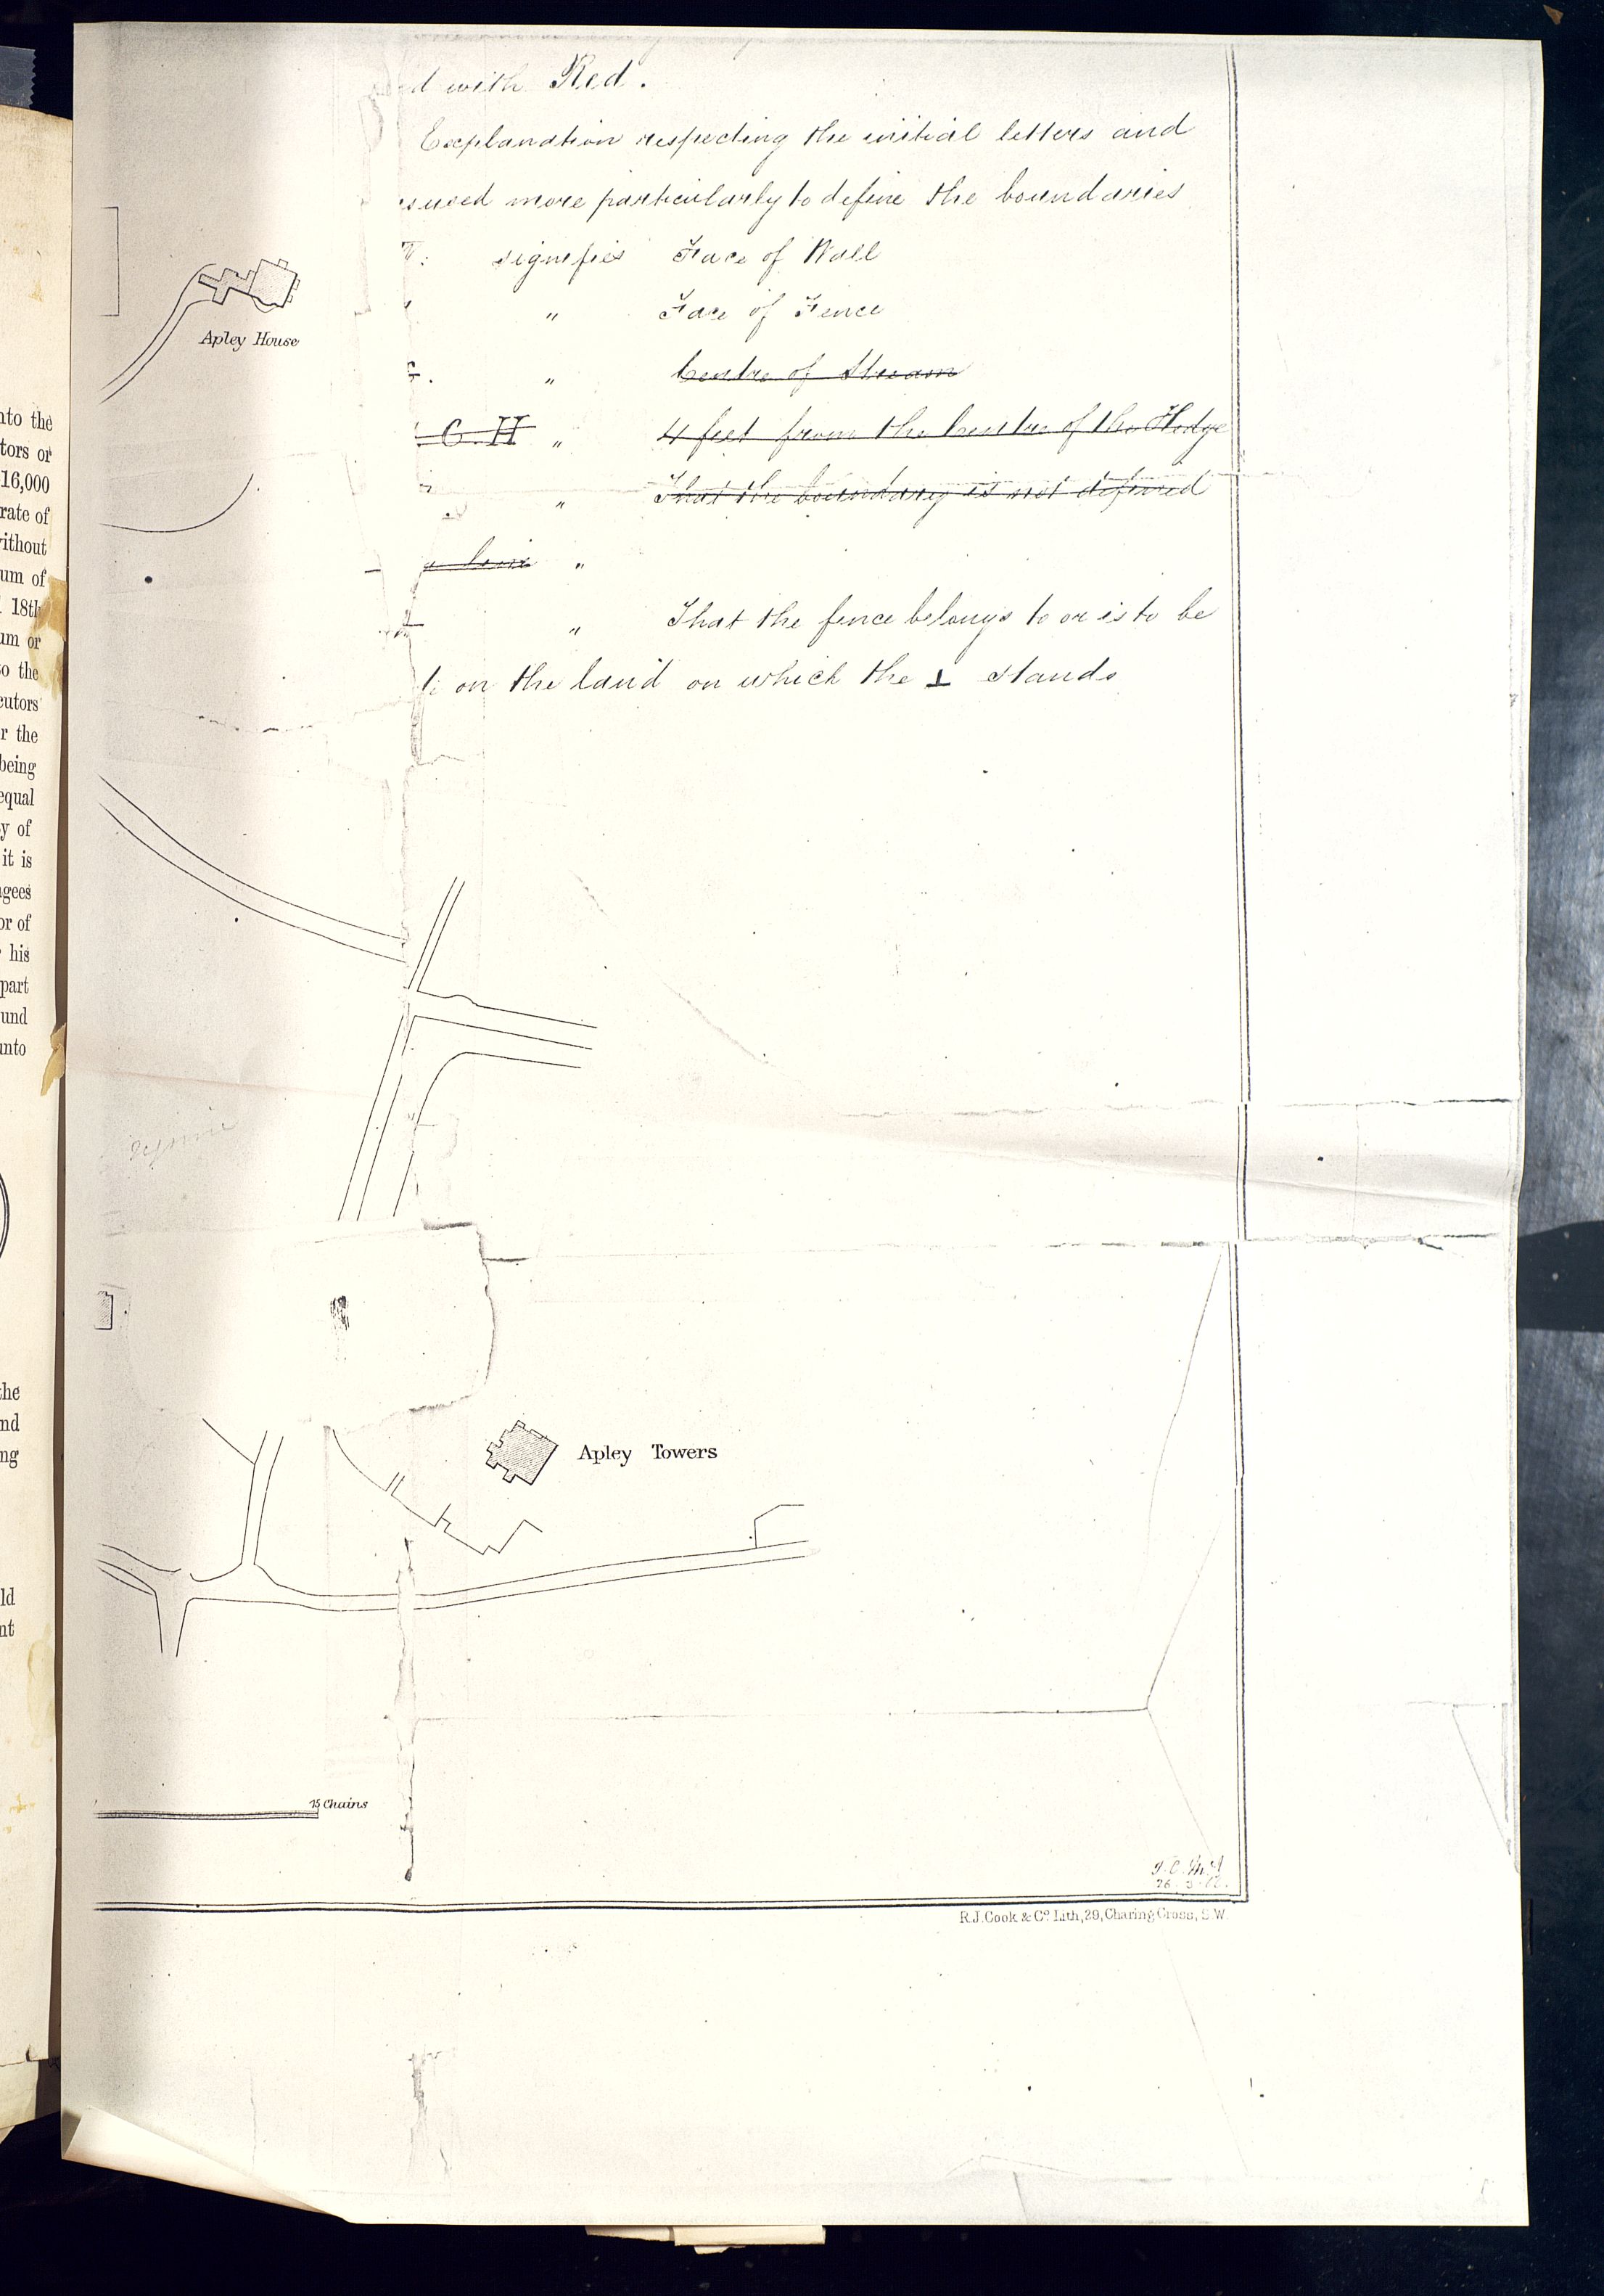 d with Red.
Explanation respecting the initial letters and
used more particularly to define the boundaries
signifies Face of Wall
" Face of Fence
" Centre of Stream
C. H " 4 feet from the Centre of the Hedge
" That the boundary is not defined
a line "
" That the fence belongs to or is to be
on the land on which the ⊥ stands
Apley House
Apley Towers
15 Chains
R.J. Cook & Co. Lith, 29, Charing Cross, S.W.
nto the
tors or
16,000
rate of
ithout
um of
18th
um or
o the
cutors
r the
being
equal
y of
it is
gagees
or of
his
part
und
unto
the
nd
ng
ld
nt